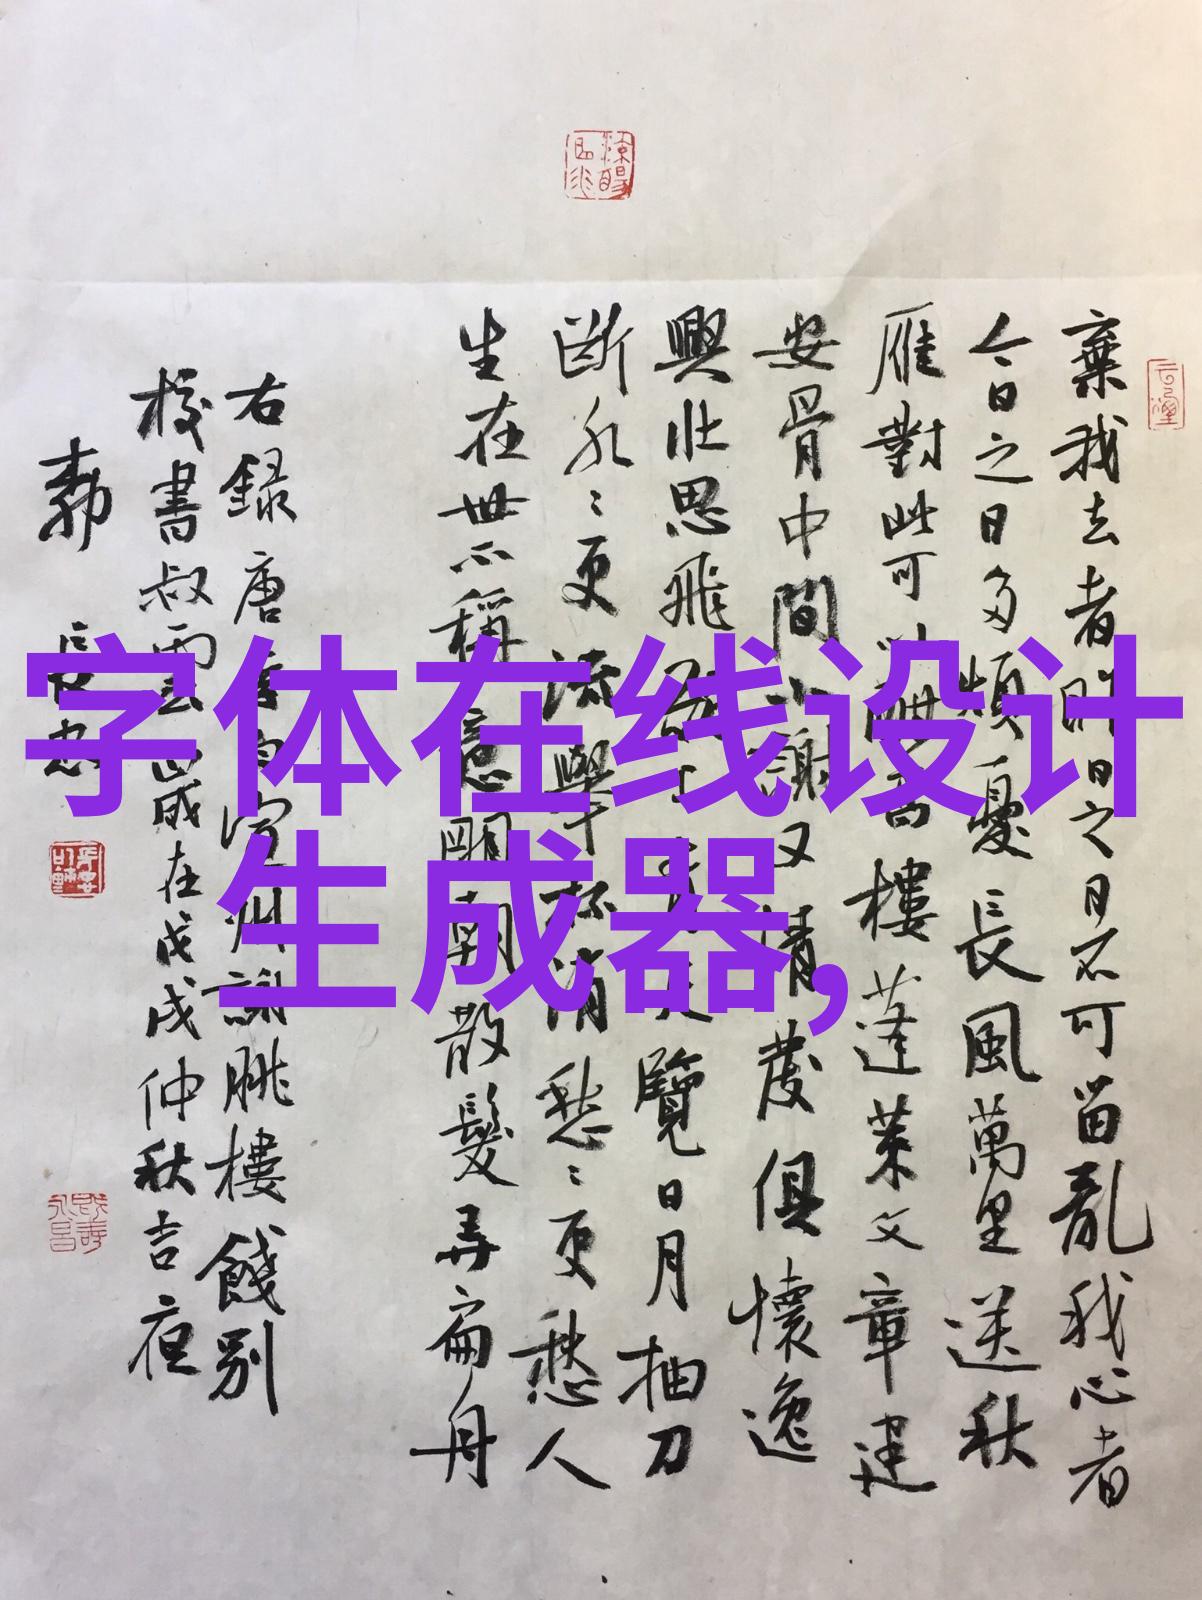 棄我去者昨日之日不可留亂我心者
今日之日多煩憂長風萬里送秋
雁對此可以酣高樓蓬萊文章建
安骨中間小謝又清發俱懷逸
興壯思飛欲上青天覽日月抽刀
斷水〻更流舉杯消愁〻更愁人
生在世不稱意明朝散髮弄扁舟
右録唐李白宣州謝朓樓餞別
校書叔雲歲在戊戌仲秋吉夜
字体在线设计
生成器,